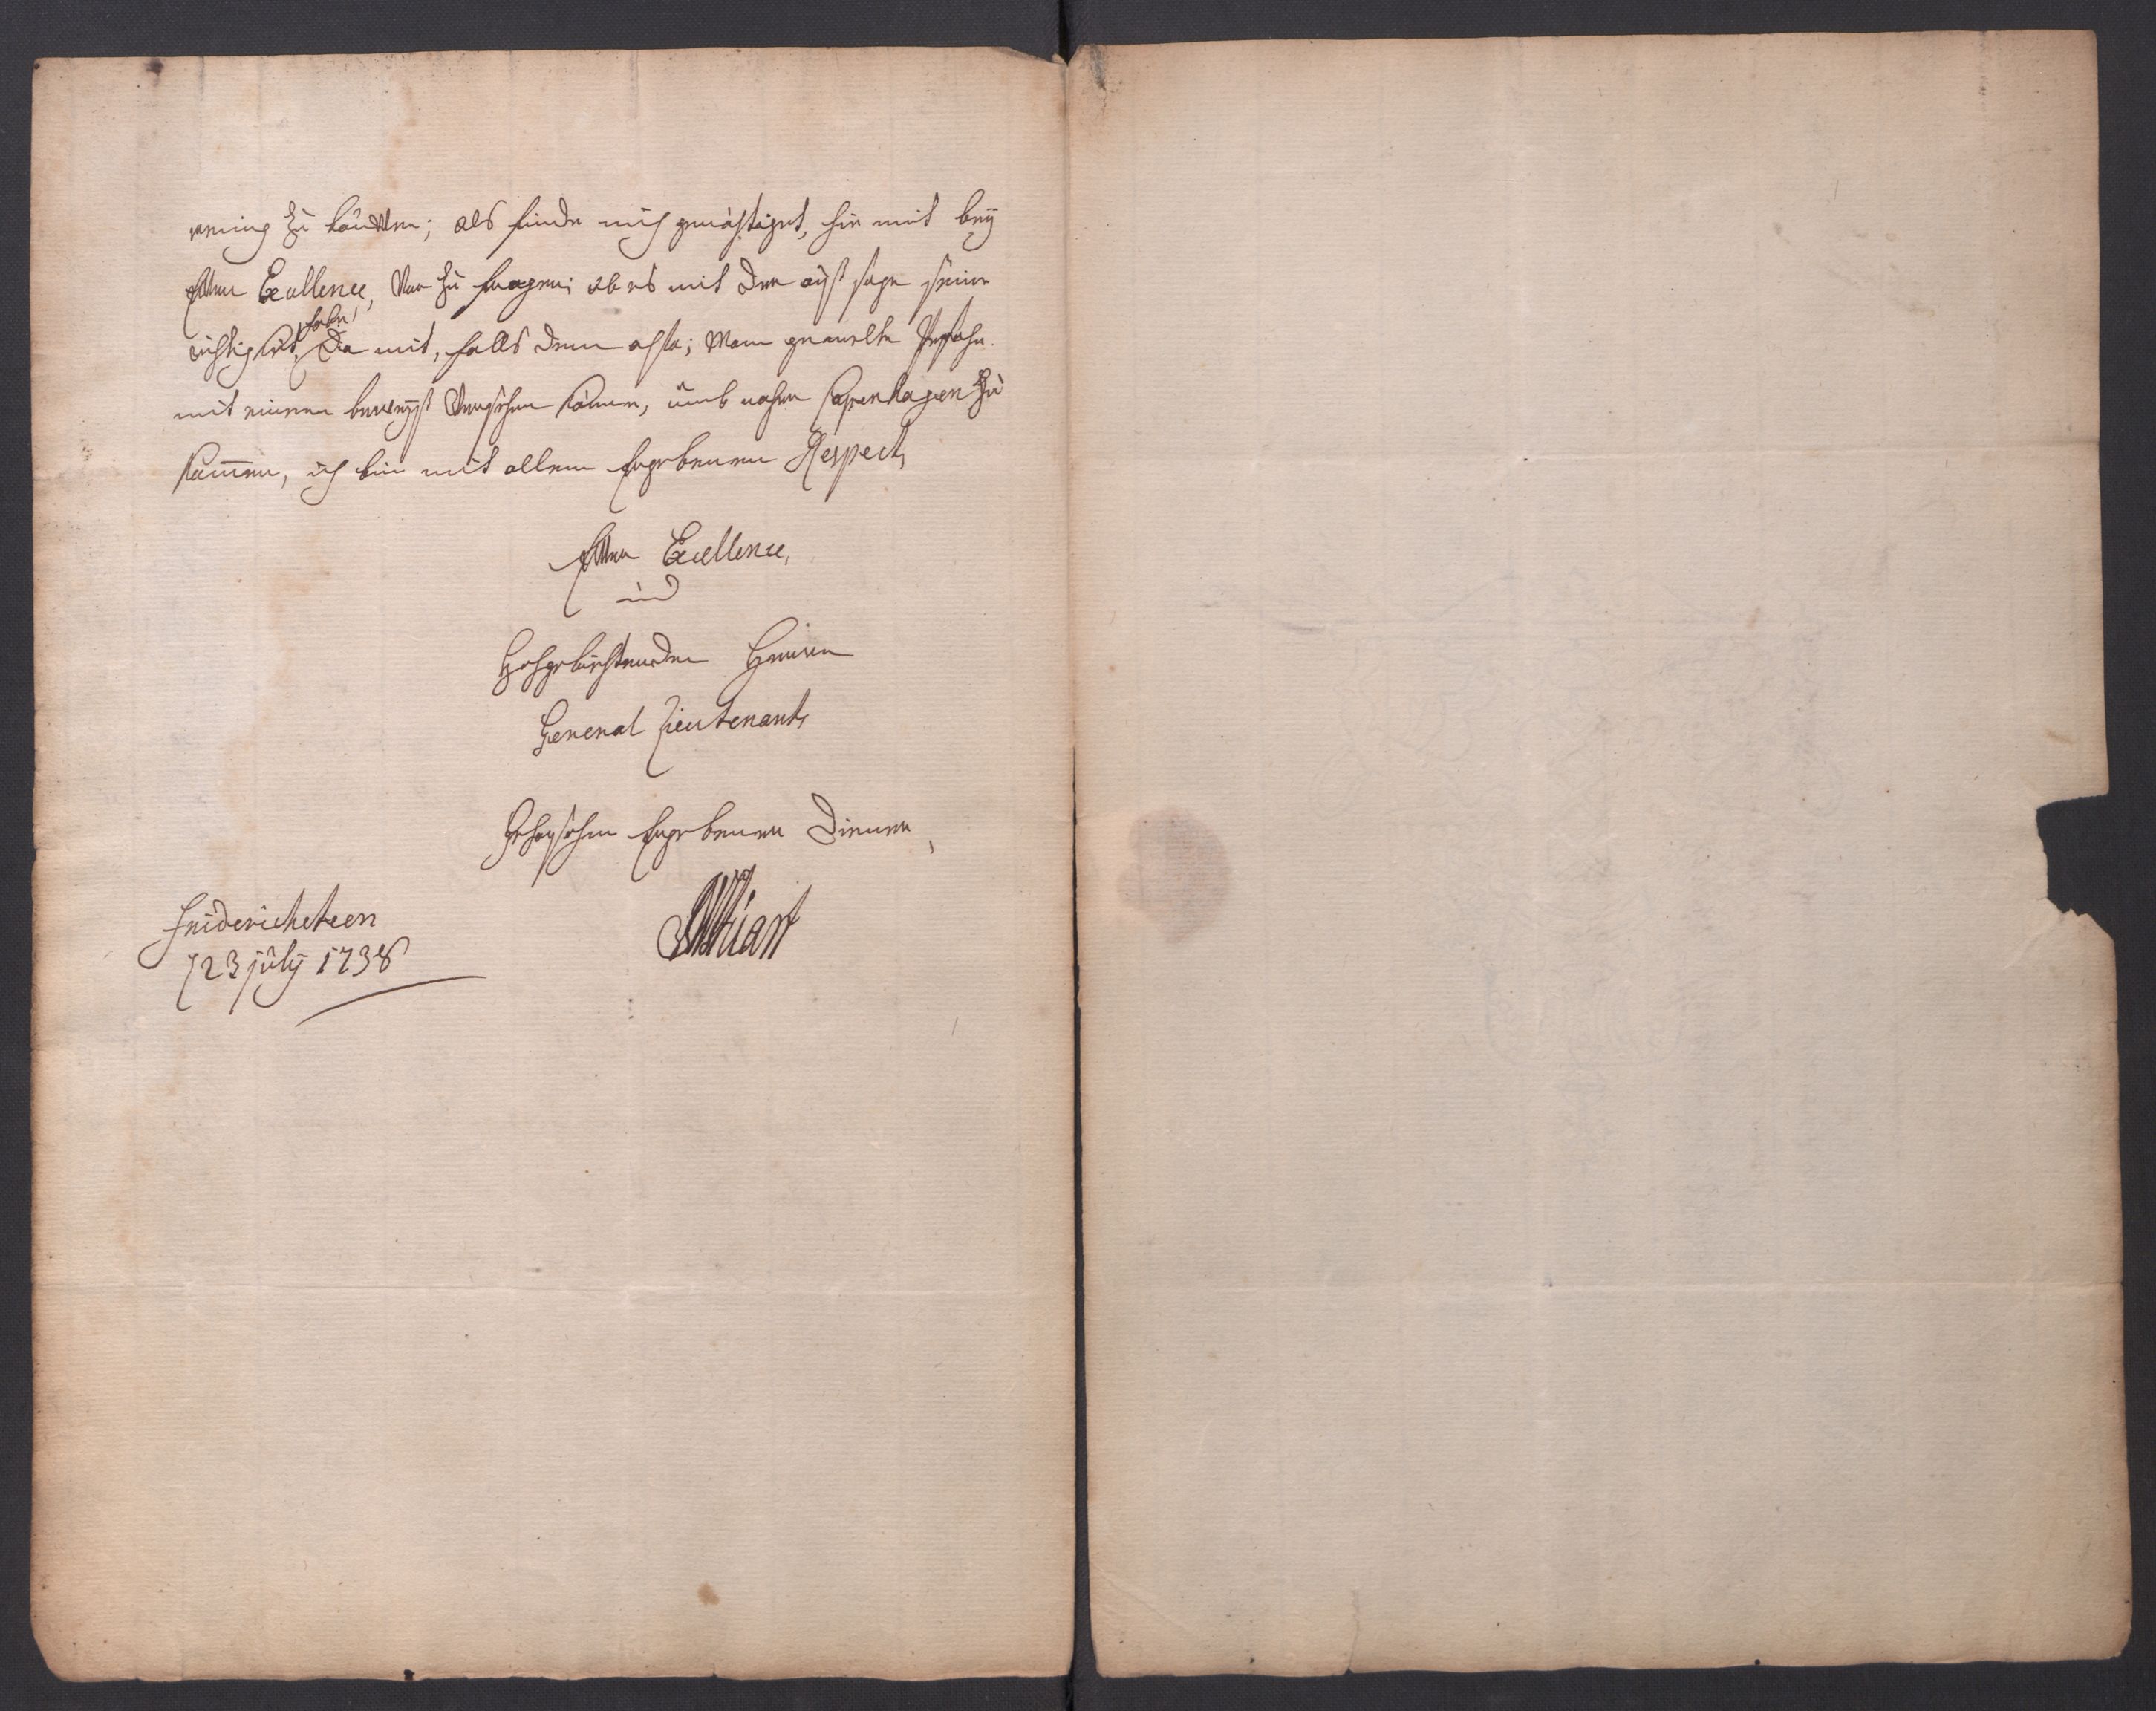 wenig zu laüffen; als finde mich genöhtiget, hie mit beÿ
Ewer Excellence, Vor zu fragen; ob es mit der auß sage seine
richtigkeit habe,
da mit, falls dem also; man gemelte Persohn
mit einem beweiß Versehen könne, umb naher Copenhagen zu
kommen, ich bin mit allem Ergebenen Respect,
Ewer Excellence,
und
Hochgebiehtenden Herren
General Lieutenant,
Gehorsahm Ergebener Diener,
Friderichsteen
23 july 1738